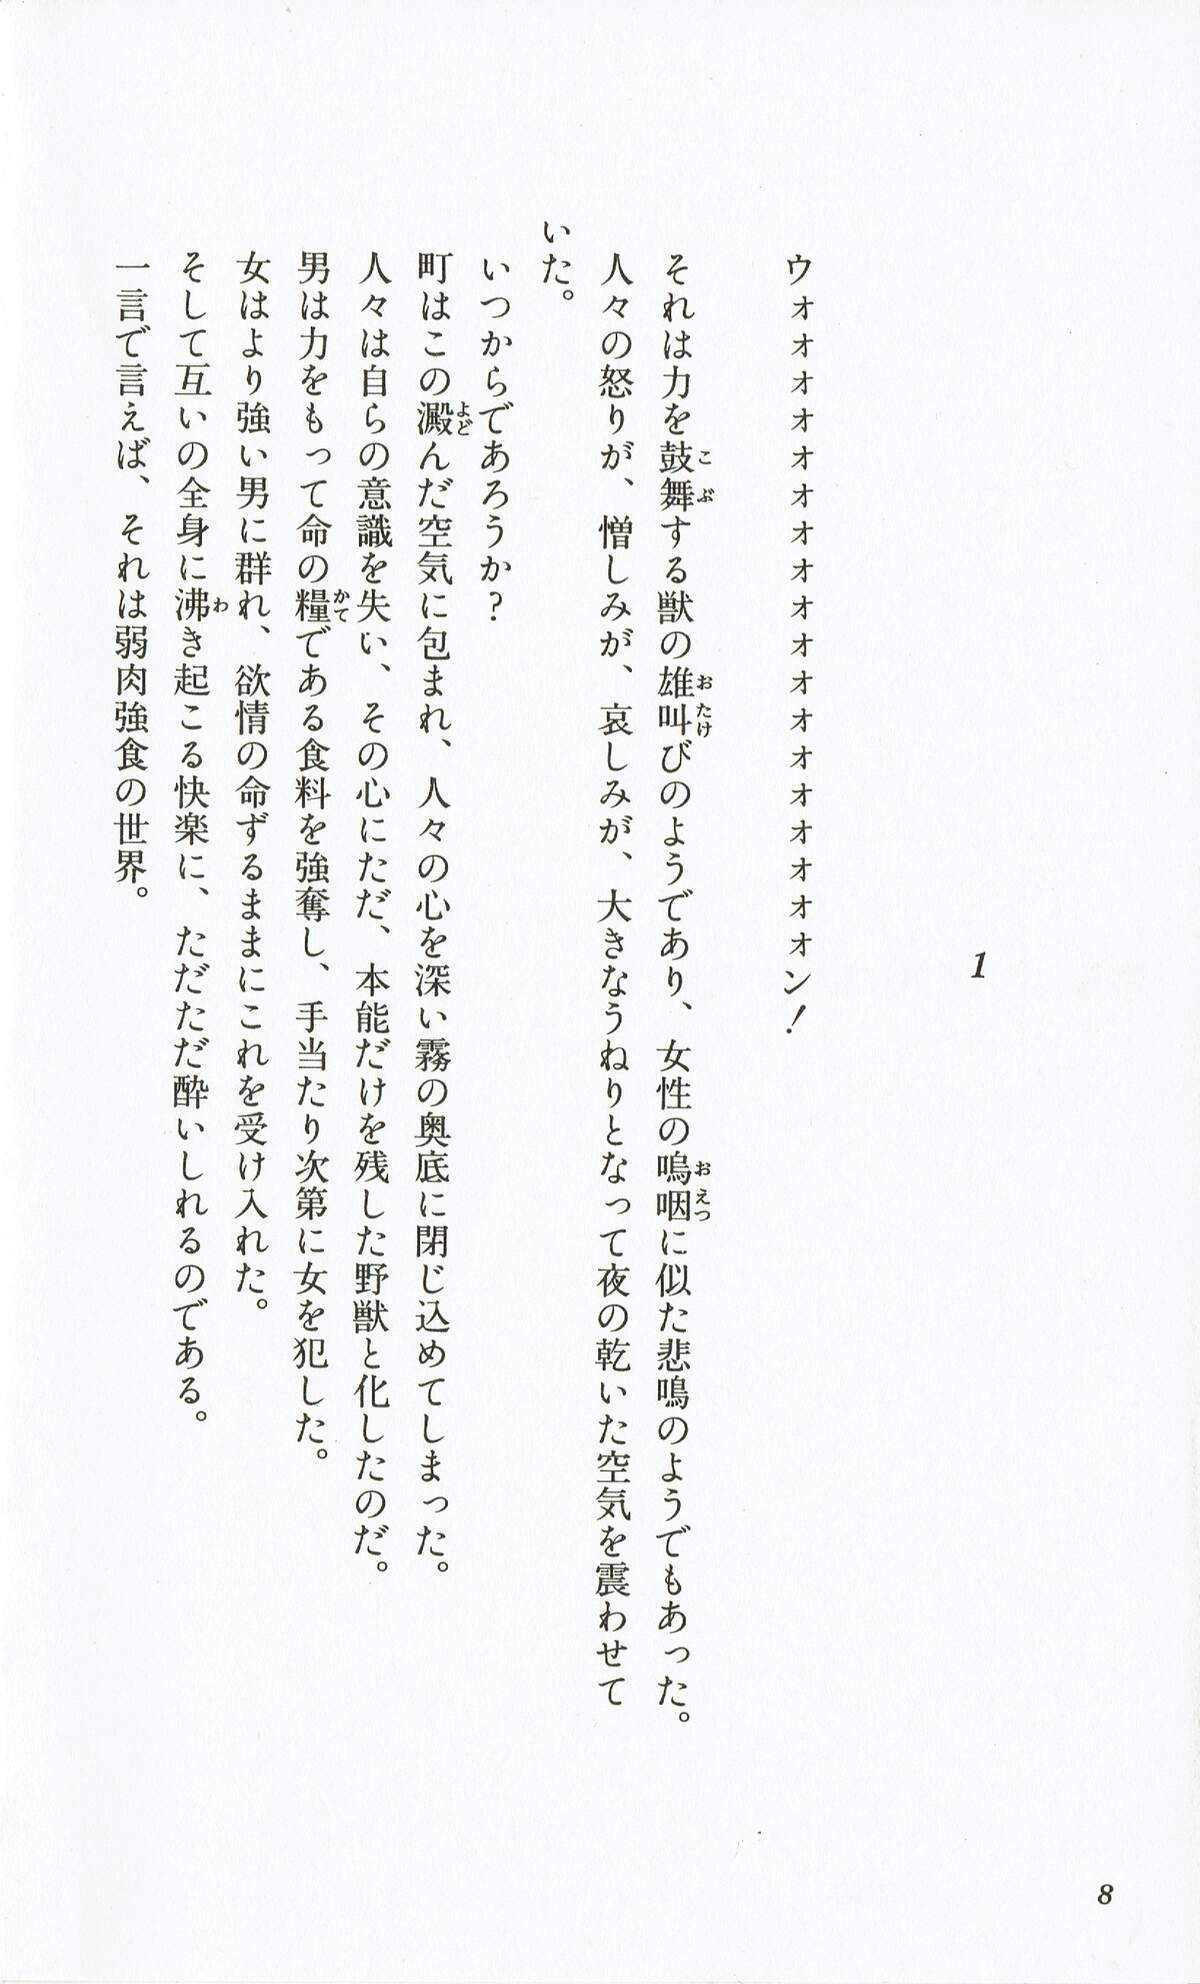 1
ウォォォォォォォォォォォォォォォォォォン！
こぶ　おたけ　おえつ
それは力を鼓舞する獣の雄叫びのようであり、女性の嗚咽に似た悲鳴のようでもあった。
人々の怒りが、憎しみが、哀しみが、大きなうねりとなって夜の乾いた空気を震わせて
いた。
いつからであろうか？
よど
町はこの澱んだ空気に包まれ、人々の心を深い霧の奥底に閉じ込めてしまった。
人々は自らの意識を失い、その心にただ、本能だけを残した野獣と化したのだ。
かて
男は力をもって命の糧である食料を強奪し、手当たり次第に女を犯した。
女はより強い男に群れ、欲情の命ずるままにこれを受け入れた。
わ
そして互いの全身に沸き起こる快楽に、ただただ酔いしれるのである。
一言で言えば、それは弱肉強食の世界。
8